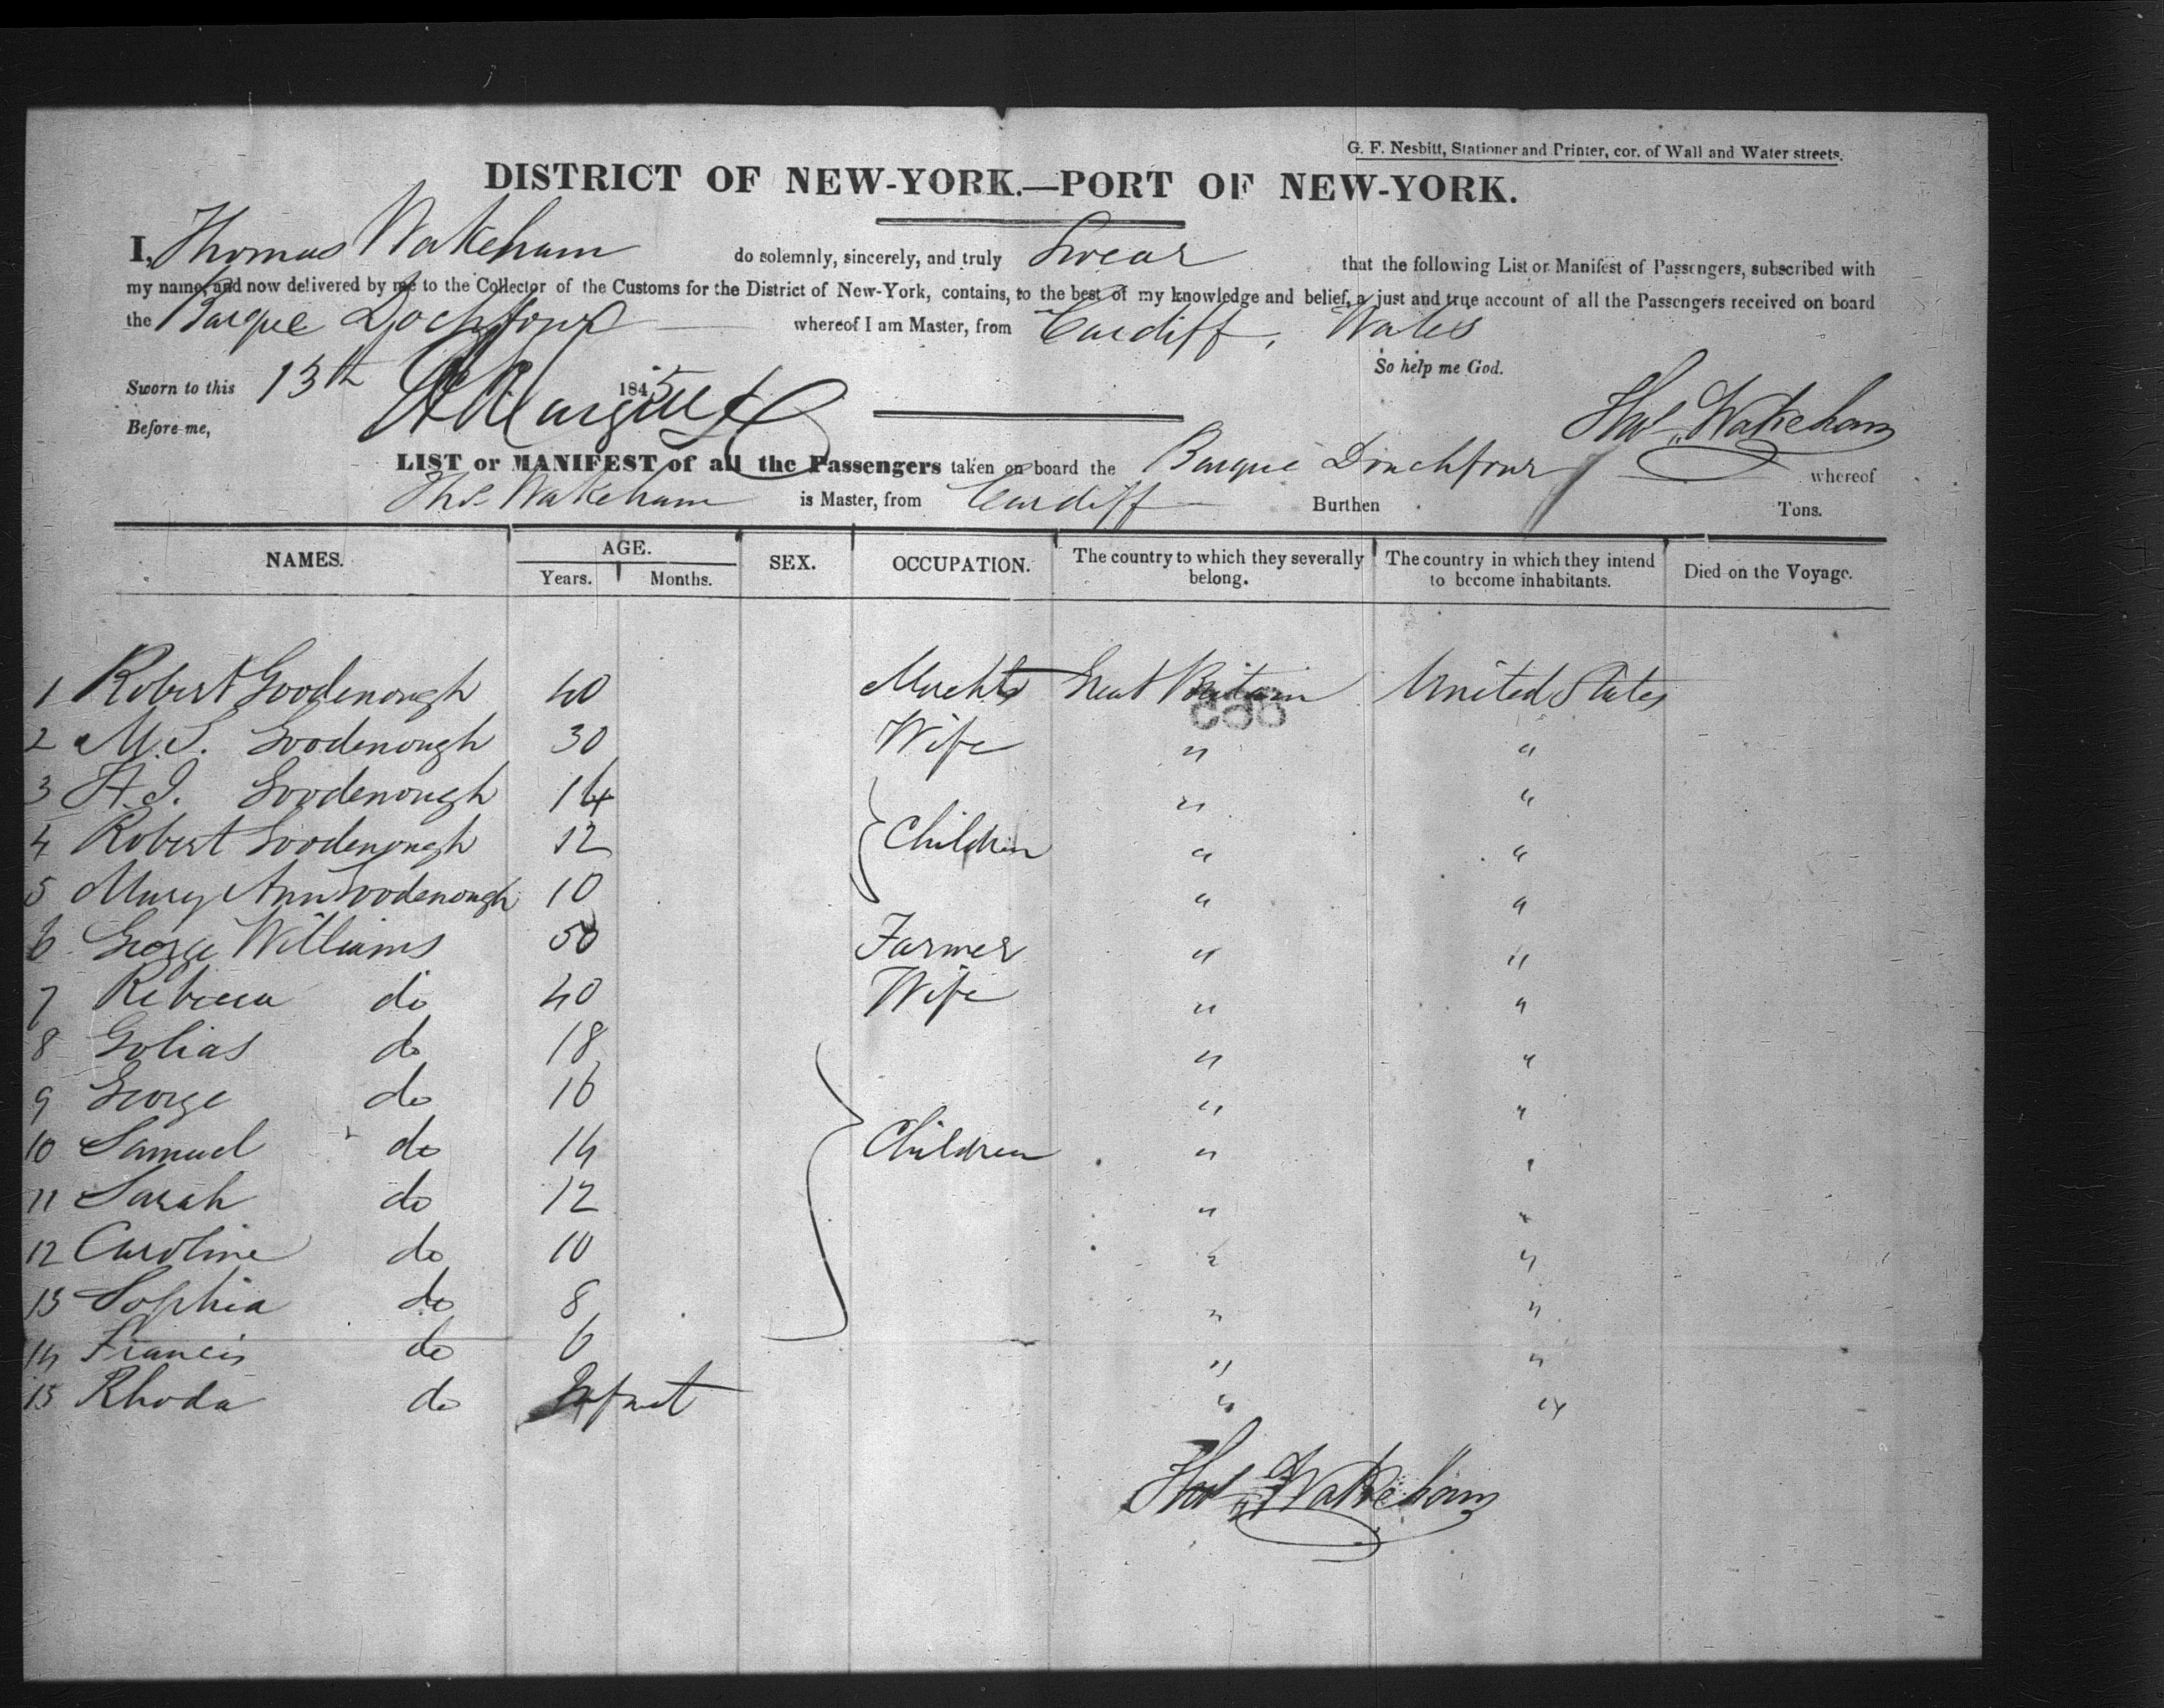 G. F. Nesbitt, Stationer and Printer, cor. of Wall and Water streets.
DISTRICT OF NEW-YORK.—PORT OF NEW-YORK.
I, Thomas Wakeham do solemnly, sincerely, and truly Swear that the following List or Manifest of Passengers, subscribed with
my name, and now delivered by me to the Collector of the Customs for the District of New-York, contains, to the best of my knowledge and belief, a just and true account of all the Passengers received on board
the Barque Dochfour whereof I am Master, from Cardiff, Wales
So help me God.
Sworn to this 13th 1845
Before me,
Thos Wakeham
LIST or MANIFEST of all the Passengers taken on board the Barque Douchfour whereof
Thos Wakeham is Master, from Cardiff Burthen Tons.
NAMES. AGE. SEX. OCCUPATION. The country to which they severally belong. The country in which they intend to become inhabitants. Died on the Voyage.
Years. Months.
1 Robert Goodenough 40 Mercht Great Britain United States
2 M. S. Goodenough 30 Wife " "
3 Goodenough 14 " "
4 Robert Goodenough 12 Children " "
5 Mary Ann Goodenough 10 " "
6 George Williams 50 Farmer " "
7 Rebecca do 40 Wife " "
8 Golias do 18 " "
9 George do 16 " "
10 Samuel do 14 Children " "
11 Sarah do 12 " "
12 Caroline do 10 " "
13 Sophia do 8 " "
14 Francis do 6 " "
15 Rhoda do Infant " "
Thos Wakeham